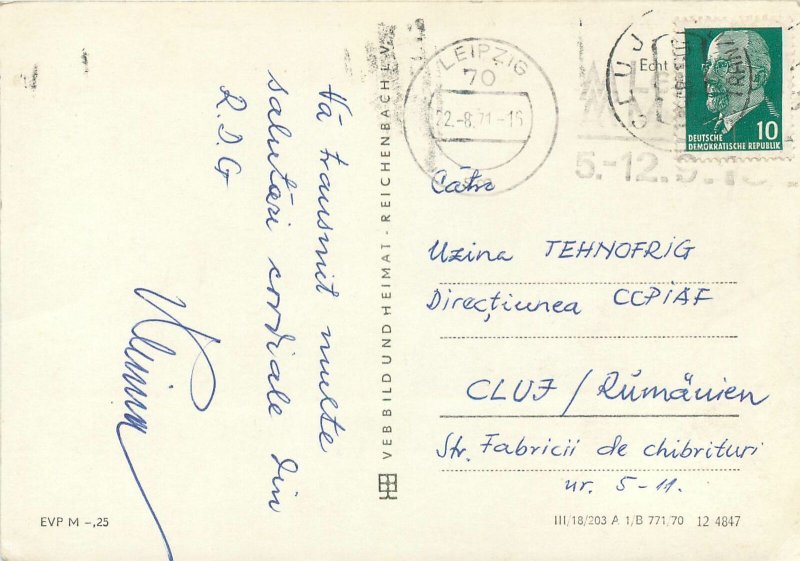 Vă transmit multe
salutări cordiale din
R.D.G
Cătr
Uzina TEHNOFRIG
Direcțiunea CCPIAF
CLUJ / Rumänien
Str. Fabricii de chibrituri
nr. 5-11.
VEB BILD UND HEIMAT · REICHENBACH I. V.
EVP M –,25
III/18/203 A 1/B 771/70 12 4847
Echt
LEIPZIG
70
22.-8.71.-16
CLUJ
5.-12.9.
10
DEUTSCHE
DEMOKRATISCHE REPUBLIK